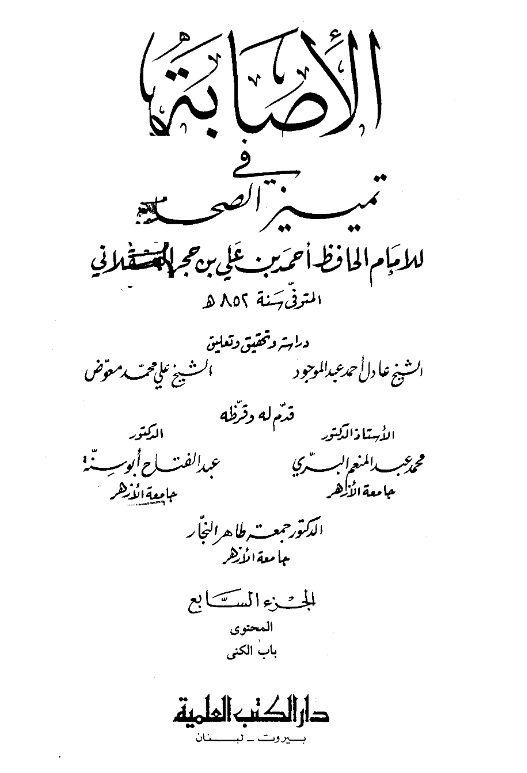 الإصابة
في
تمييز الصحابة
للإمام الحافظ أحمد بن علي بن حجر العسقلاني
المتوفى سنة ٨٥٢ هـ
دراسة وتحقيق وتعليق
الشيخ عادل أحمد عبد الموجود الشيخ علي محمد معوض
قدّم له وقرّظه
الأستاذ الدكتور الدكتور
محمد عبد المنعم البرّي عبد الفتاح أبو سنّة
جامعة الأزهر جامعة الأزهر
الدكتور جمعة طاهر النجّار
جامعة الأزهر
الجزء السّابع
المحتوى
باب الكنى
دار الكتب العلمية
بيروت - لبنان